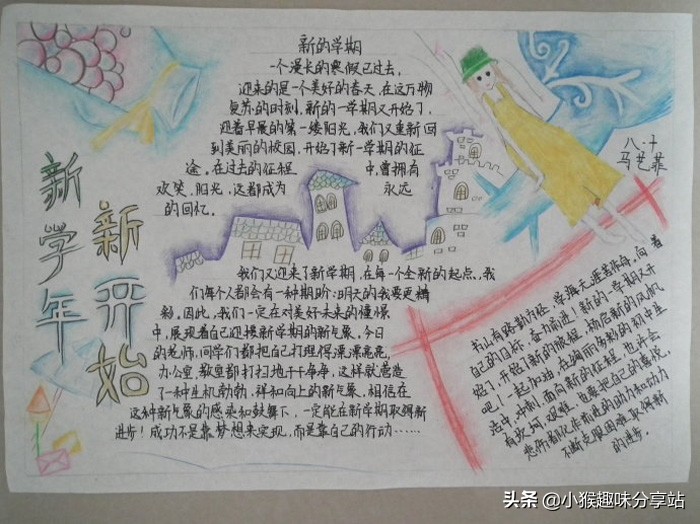 新学年
新开始
新的学期
一个漫长的寒假已过去,
迎来的是一个美好的春天,在这万物
复苏的时刻,新的一学期又开始了,
迎着早晨的第一缕阳光,我们又重新回
到美丽的校园,开始了新一学期的征
途,在过去的征程中,曾拥有
欢笑、阳光,这都成为永远
的回忆。
八.十
马艺菲
我们又迎来了新学期,在每一个全新的起点,我
们每个人都会有一种期盼:明天的我要更精
彩,因此,我们一定在对美好未来的憧憬
中,展现着自己迎接新学期的新气象,今日
的老师,同学们都把自己打理得漂漂亮亮,
办公室,教室都打扫地干干净净,这样就营造
了一种生机勃勃,祥和向上的新气象,相信在
这种新气象的感染和鼓舞下,一定能在新学期取得新
进步!成功不是靠梦想来实现,而是靠自己的行动……
书山有路勤为径,学海无涯苦作舟,向着
自己的目标,奋力前进!新的一学期又开
始了,开始了新的旅程,扬启新的风帆
吧!一起加油,在绚丽多彩的初中生
活中,冲刺,面向新的征程,也许会
有坎坷,艰难,也要把自己的喜悦,
悲伤都化作前进的动力和动力
不断克服困难取得新
的进步。
头条 @小猴趣味分享站